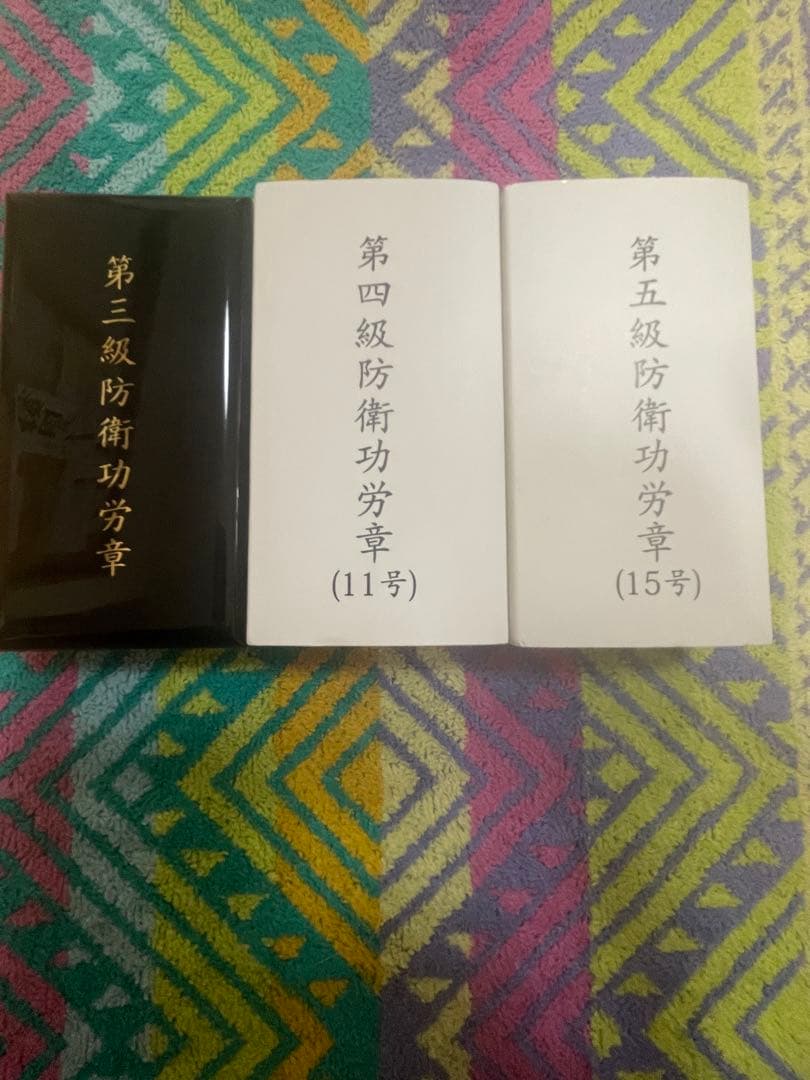 第三級防衛功労章
第四級防衛功労章
(11号)
第五級防衛功労章
(15号)